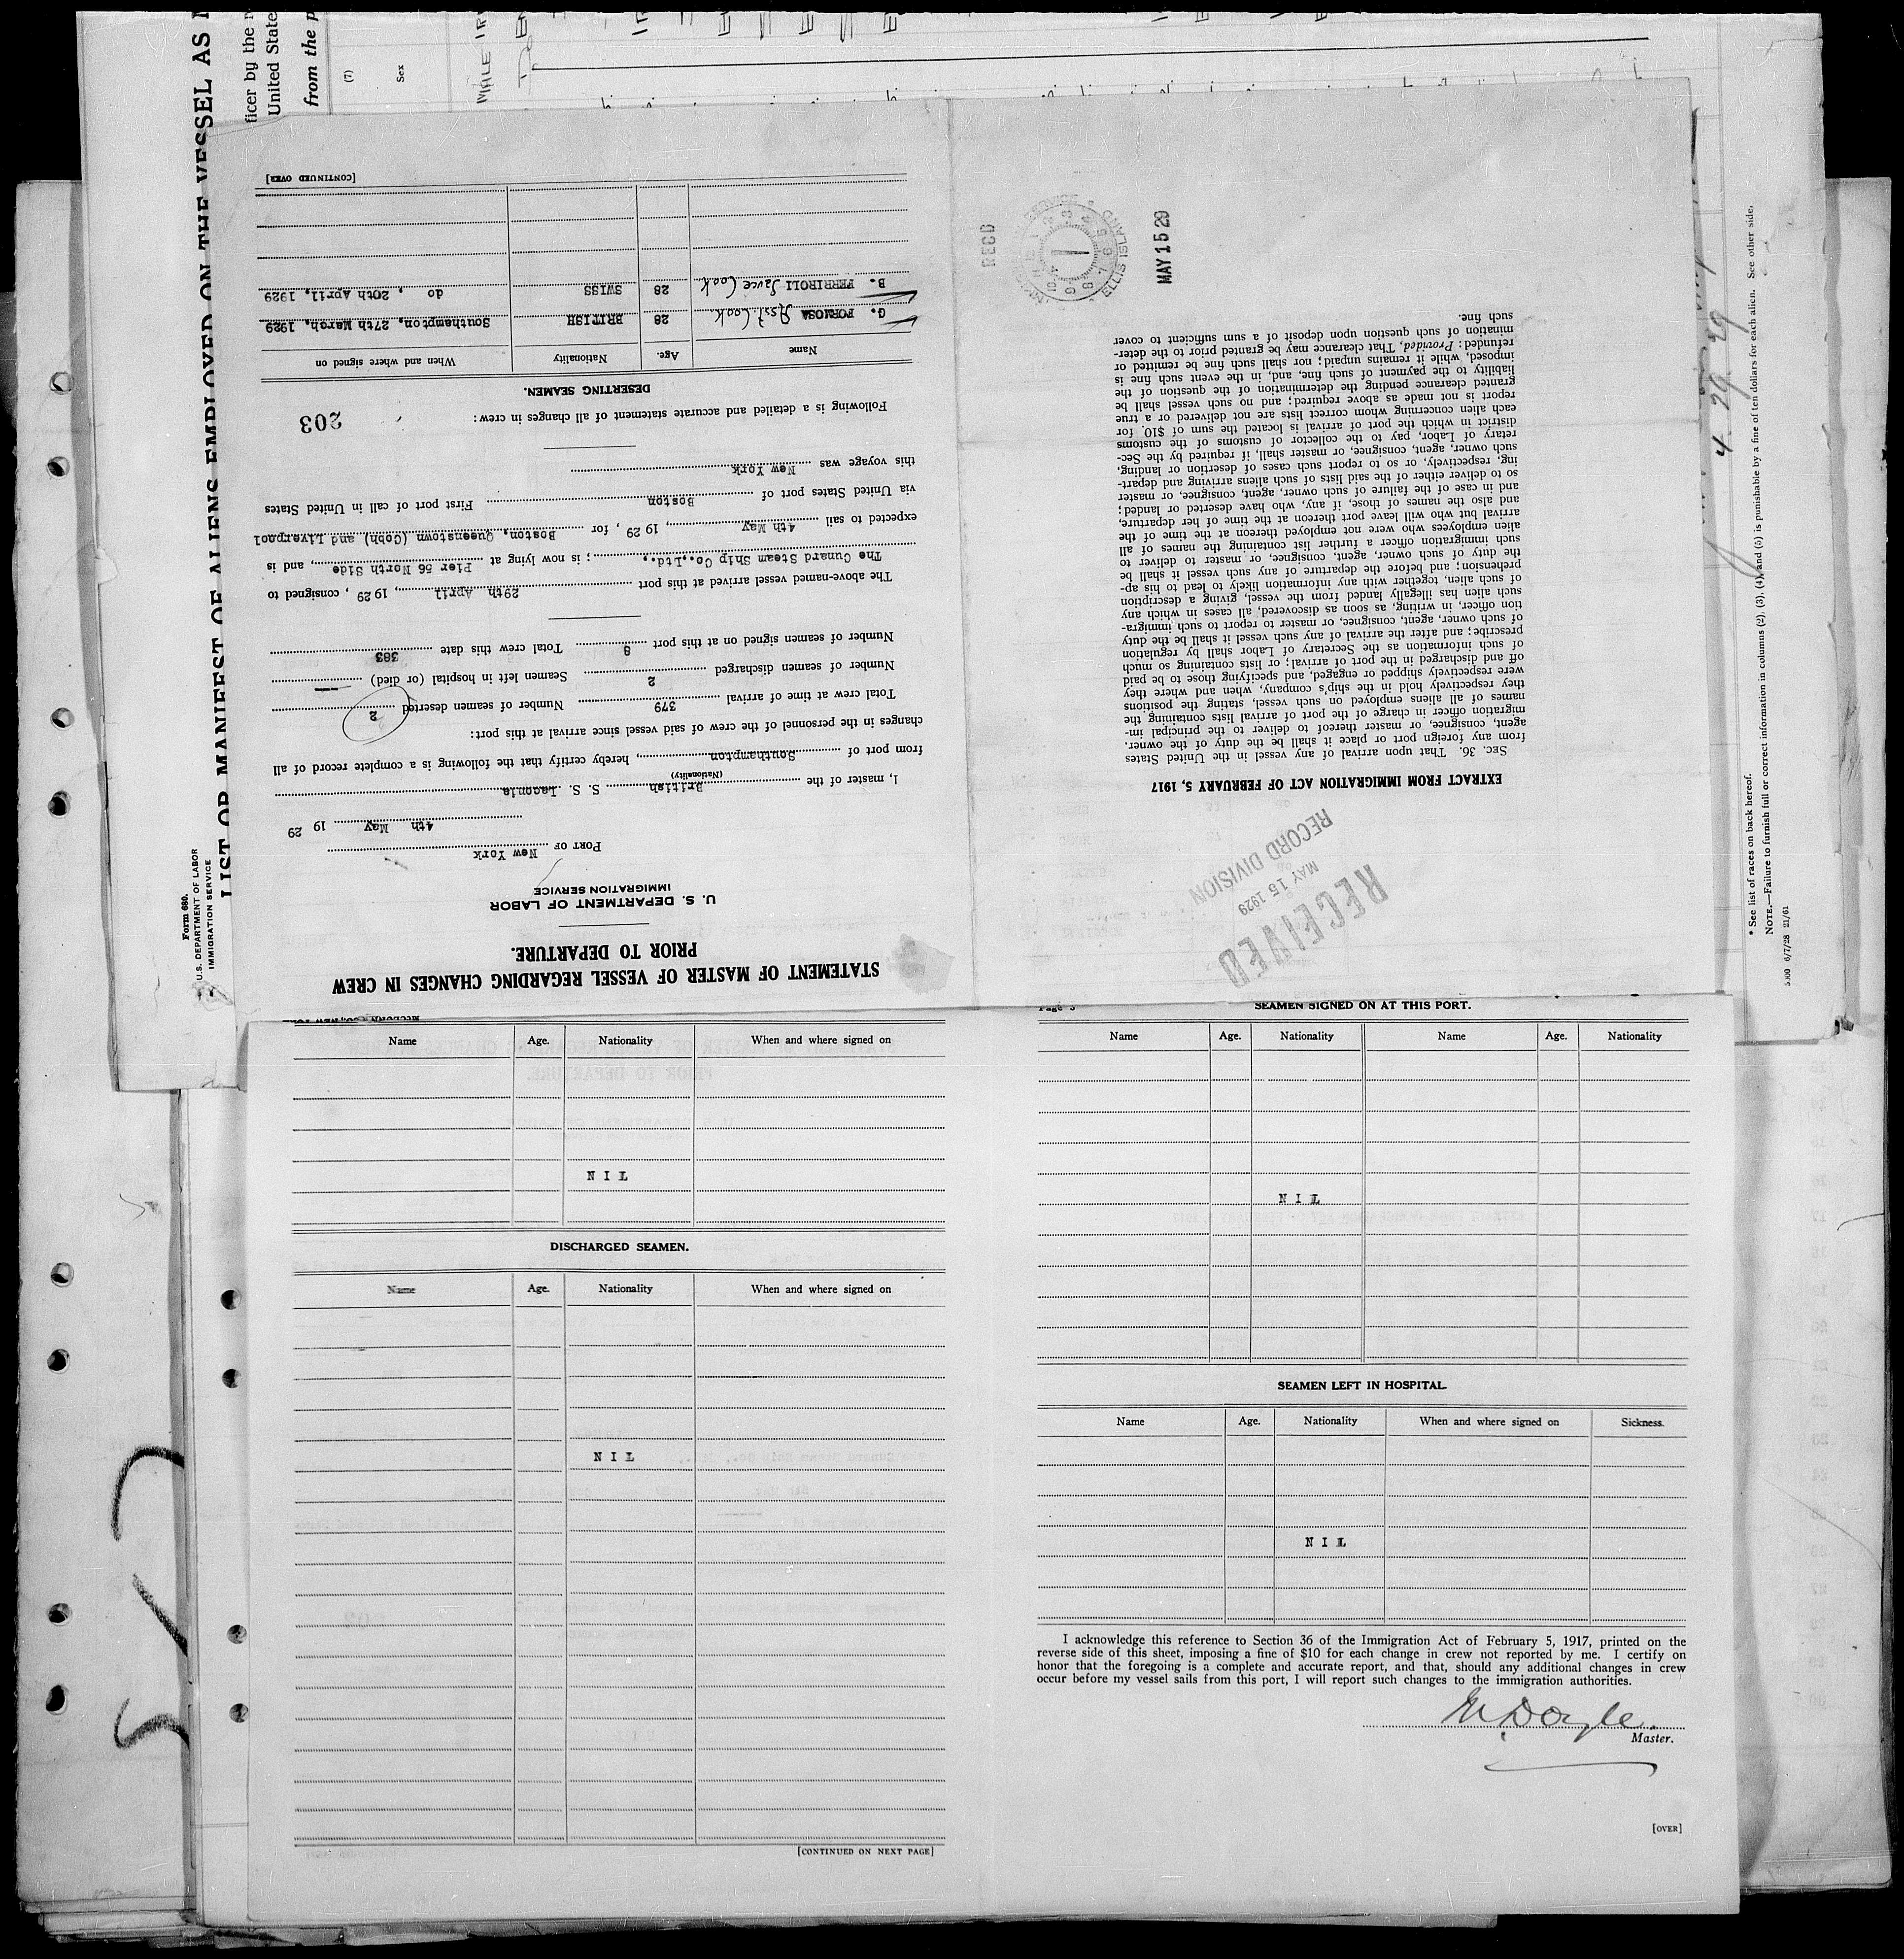 LIST OR MANIFEST OF ALIENS EMPLOYED ON THE VESSEL AS
ficer by the
United State
from the
(7)
Sex
MALE
Form 680.
U. S. DEPARTMENT OF LABOR
IMMIGRATION SERVICE
STATEMENT OF MASTER OF VESSEL REGARDING CHANGES IN CREW
PRIOR TO DEPARTURE.
U. S. DEPARTMENT OF LABOR
IMMIGRATION SERVICE
PORT OF New York
4th May 19 29
I, master of the British S. S. Laconia
(Nationality)
from port of Southampton, hereby certify that the following is a complete record of all
changes in the personnel of the crew of said vessel since arrival at this port:
Total crew at time of arrival 379 Number of seamen deserted 2
Number of seamen discharged 2 Seamen left in hospital (or died) —
Number of seamen signed on at this port 8 Total crew this date 383
The above-named vessel arrived at this port 29th April, 19 29, consigned to
The Cunard Steam Ship Co.,Ltd.,; is now lying at Pier 56 North Side, and is
expected to sail 4th May, 19 29, for Boston, Queenstown (Cobh) and Liverpool
via United States port of Boston First port of call in United States
this voyage was New York
Following is a detailed and accurate statement of all changes in crew:
203
DESERTING SEAMEN.
Name Age. Nationality When and where signed on
G. FORMOSA Asst Cook. 28 BRITISH Southampton, 27th March, 1929
B. FERRIROLI Sauce Cook. 28 SWISS do , 20th April, 1929
[CONTINUED OVER]
RECD
ELLIS ISLAND
MAY 15 29
RECEIVED
MAY 15 1929
RECORD DIVISION
EXTRACT FROM IMMIGRATION ACT OF FEBRUARY 5, 1917
SEC. 36. That upon arrival of any vessel in the United States
from any foreign port or place it shall be the duty of the owner,
agent, consignee, or master thereof to deliver to the principal im-
migration officer in charge of the port of arrival lists containing the
names of all aliens employed on such vessel, stating the positions
they respectively hold in the ship's company, when and where they
were respectively shipped or engaged, and specifying those to be paid
off and discharged in the port of arrival; or lists containing so much
of such information as the Secretary of Labor shall by regulation
prescribe; and after the arrival of any such vessel it shall be the duty
of such owner, agent, consignee, or master to report to such immigra-
tion officer, in writing, as soon as discovered, all cases in which any
such alien has illegally landed from the vessel, giving a description
of such alien, together with any information likely to lead to his ap-
prehension; and before the departure of any such vessel it shall be
the duty of such owner, agent, consignee, or master to deliver to
such immigration officer a further list containing the names of all
alien employees who were not employed thereon at the time of the
arrival but who will leave port thereon at the time of her departure,
and also the names of those, if any, who have deserted or landed;
and in case of the failure of such owner, agent, consignee, or master
so to deliver either of the said lists of such aliens arriving and depart-
ing, respectively, or so to report such cases of desertion or landing,
such owner, agent, consignee, or master shall, if required by the Sec-
retary of Labor, pay to the collector of customs of the customs
district in which the port of arrival is located the sum of $10. for
each alien concerning whom correct lists are not delivered or a true
report is not made as above required; and no such vessel shall be
granted clearance pending the determination of the question of the
liability to the payment of such fine, and, in the event such fine is
imposed, while it remains unpaid; nor shall such fine be remitted or
refunded: Provided, That clearance may be granted prior to the deter-
mination of such question upon deposit of a sum sufficient to cover
such fine.
4 29 29
* See list of races on back hereof.
NOTE.—Failure to furnish full or correct information in columns (2), (3), (4), and (5) is punishable by a fine of ten dollars for each alien. See other side.
6/7/28 21/61
Name Age. Nationality When and where signed on
NIL
DISCHARGED SEAMEN.
Name Age. Nationality When and where signed on
NIL
[CONTINUED ON NEXT PAGE]
SEAMEN SIGNED ON AT THIS PORT.
Name Age. Nationality Name Age. Nationality
NIL
SEAMEN LEFT IN HOSPITAL.
Name Age. Nationality When and where signed on Sickness.
NIL
I acknowledge this reference to Section 36 of the Immigration Act of February 5, 1917, printed on the
reverse side of this sheet, imposing a fine of $10 for each change in crew not reported by me. I certify on
honor that the foregoing is a complete and accurate report, and that, should any additional changes in crew
occur before my vessel sails from this port, I will report such changes to the immigration authorities.
M. Doyle.
Master.
[OVER]